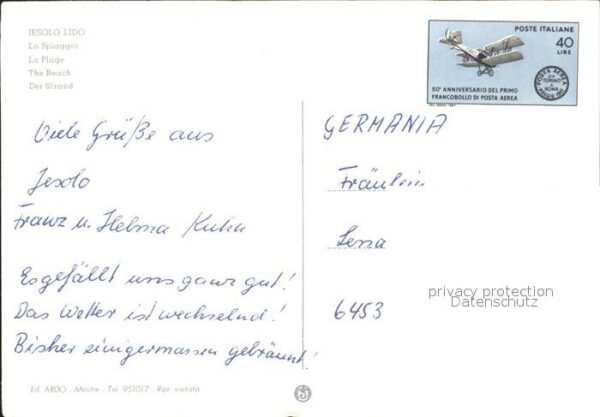 JESOLO LIDO
La Spiaggia
La Plage
The Beach
Der Strand
POSTE ITALIANE
40
LIRE
POSTA AEREA
TORINO
ROMA
50° ANNIVERSARIO DEL PRIMO
FRANCOBOLLO DI POSTA AEREA
Viele Grüße aus
Jesolo
Franz u. Helma Kuhn
Es gefällt uns ganz gut!
Das Wetter ist wechselnd!
Bisher einigermassen gebräunt!
GERMANIA
Fräulein
6453
privacy protection
Datenschutz
Ed. ARDO - Mestre - Tel. 951017 - Ripr. vietata